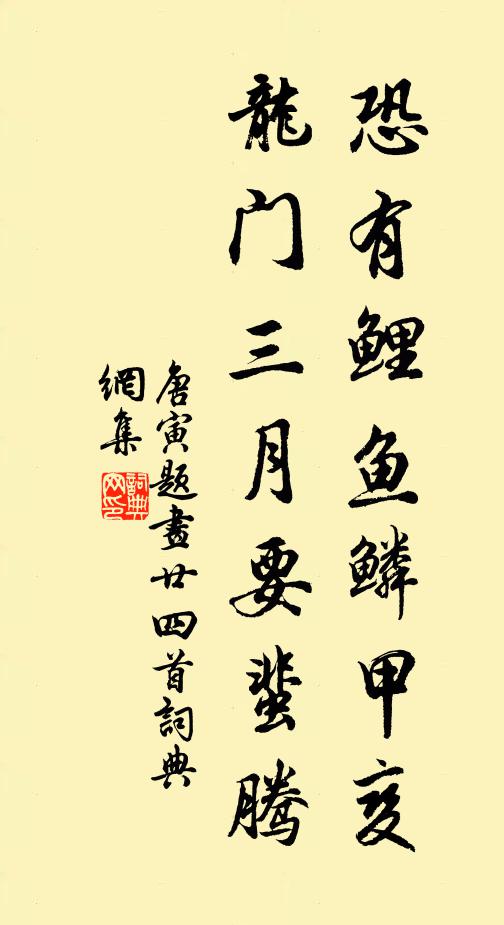 恐有鲤鱼鳞甲变
龍门三月要蜚腾
唐寅题畫廿四首詞典
網集
詞典
网印